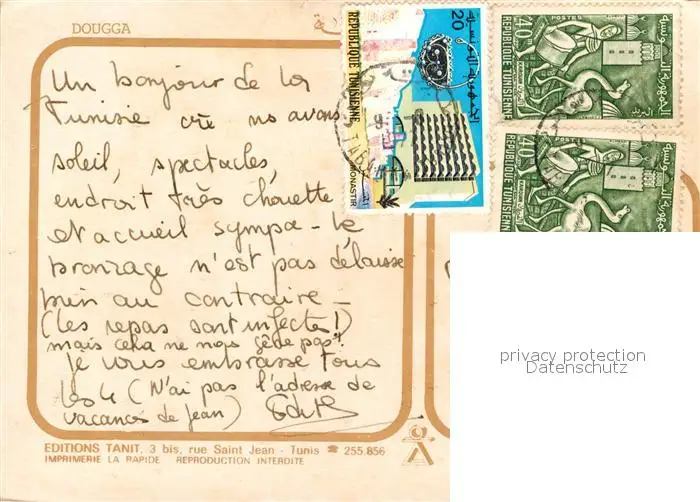 DOUGGA
Un bonjour de la
Tunisie où ns avons
soleil, spectacles,
endroit très chouette
et accueil sympa - Le
bronzage n'est pas délaissé
bien au contraire -
(Les repas sont infectes!)
mais cela ne nous gêne pas!
Je vous embrasse tous
les 4 (N'ai pas l'adresse de
vacances de Jean) Edith
EDITIONS TANIT, 3 bis, rue Saint Jean - Tunis ☎ 255.856
IMPRIMERIE LA RAPIDE REPRODUCTION INTERDITE
REPUBLIQUE TUNISIENNE
20
الجمهورية التونسية
MONASTIR
40m POSTES
REPUBLIQUE TUNISIENNE
الجمهورية التونسية
البريد
40m POSTES
REPUBLIQUE TUNISIENNE
الجمهورية التونسية
privacy protection
Datenschutz